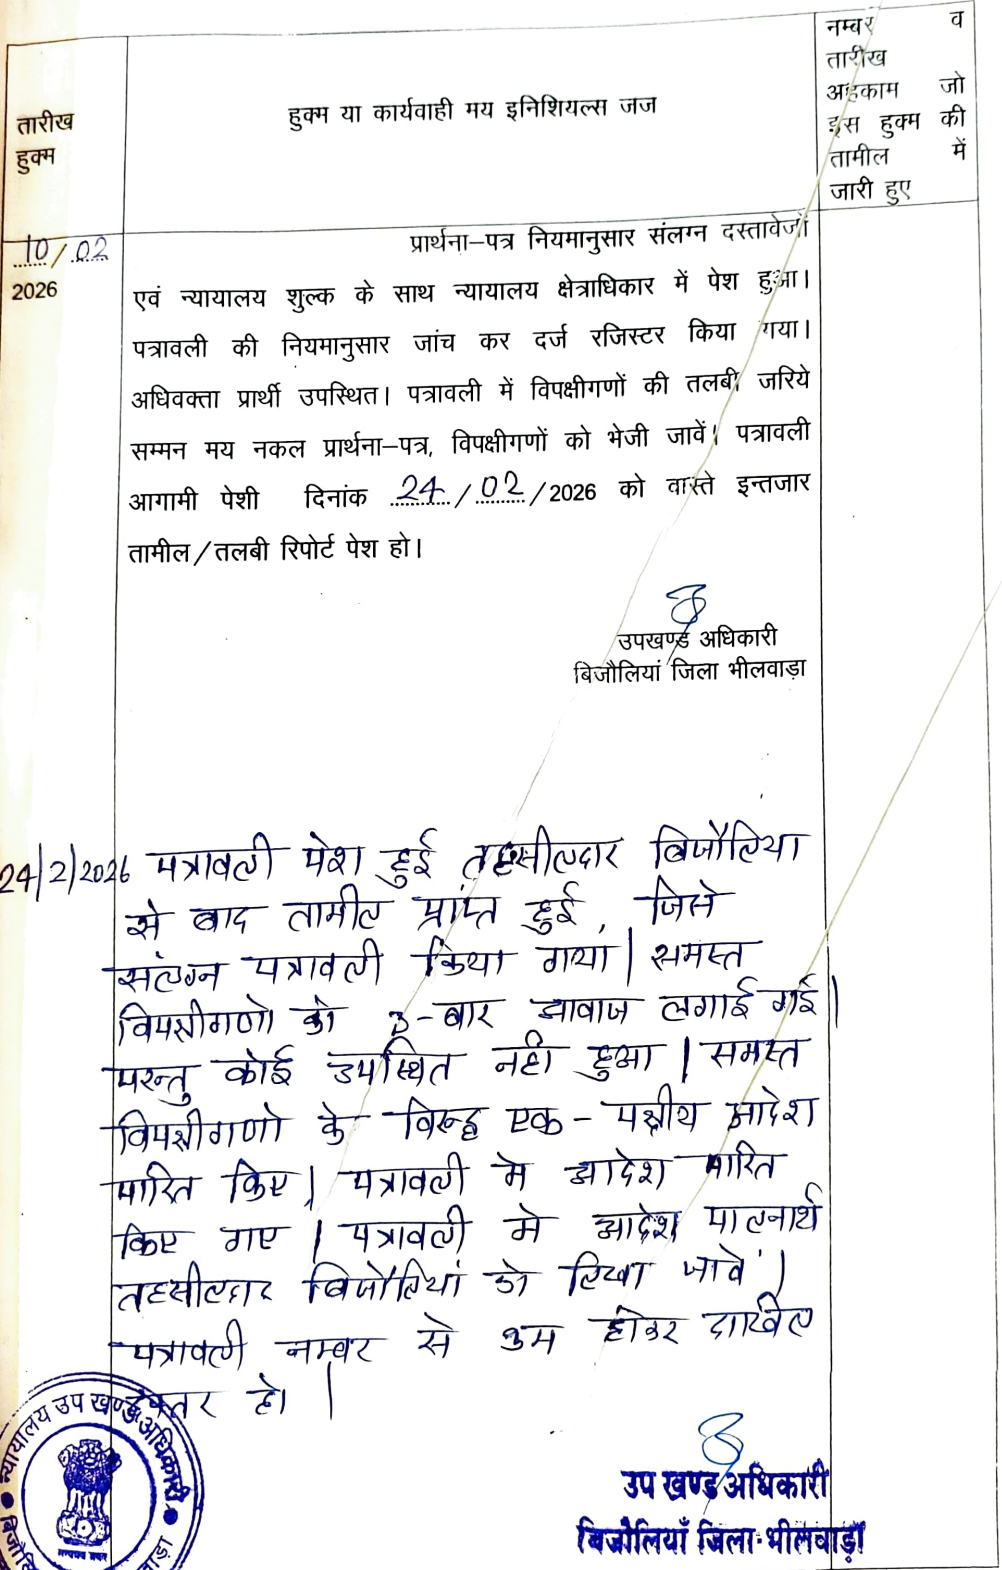 तारीख
हुक्म
हुक्म या कार्यवाही मय इनिशियल्स जज
नम्बर व
तारीख
अहकाम जो
इस हुक्म की
तामील में
जारी हुए
10/02
2026
प्रार्थना–पत्र नियमानुसार संलग्न दस्तावेजों
एवं न्यायालय शुल्क के साथ न्यायालय क्षेत्राधिकार में पेश हुआ।
पत्रावली की नियमानुसार जांच कर दर्ज रजिस्टर किया गया।
अधिवक्ता प्रार्थी उपस्थित। पत्रावली में विपक्षीगणों की तलबी जरिये
सम्मन मय नकल प्रार्थना–पत्र, विपक्षीगणों को भेजी जावें। पत्रावली
आगामी पेशी दिनांक 24/02/2026 को वास्ते इन्तजार
तामील/तलबी रिपोर्ट पेश हो।
उपखण्ड अधिकारी
बिजौलियां जिला भीलवाड़ा
24/2/2026 पत्रावली पेश हुई तहसीलदार बिजौलिया
से बाद तामील प्राप्त हुई, जिसे
संलग्न पत्रावली किया गया। समस्त
विपक्षीगणो को 3-बार आवाज लगाई गई।
परन्तु कोई उपस्थित नही हुआ। समस्त
विपक्षीगणो के विरूद्ध एक-पक्षीय आदेश
पारित किए। पत्रावली मे आदेश पारित
किए गए। पत्रावली मे आदेश पालनार्थ
तहसीलदार बिजौलियां को लिखा जावे।
पत्रावली नम्बर से कम होकर दाखिल
दफ्तर हो।
न्यायालय उप खण्ड अधिकारी
उप खण्ड अधिकारी
बिजौलियाँ जिला-भीलवाड़ा